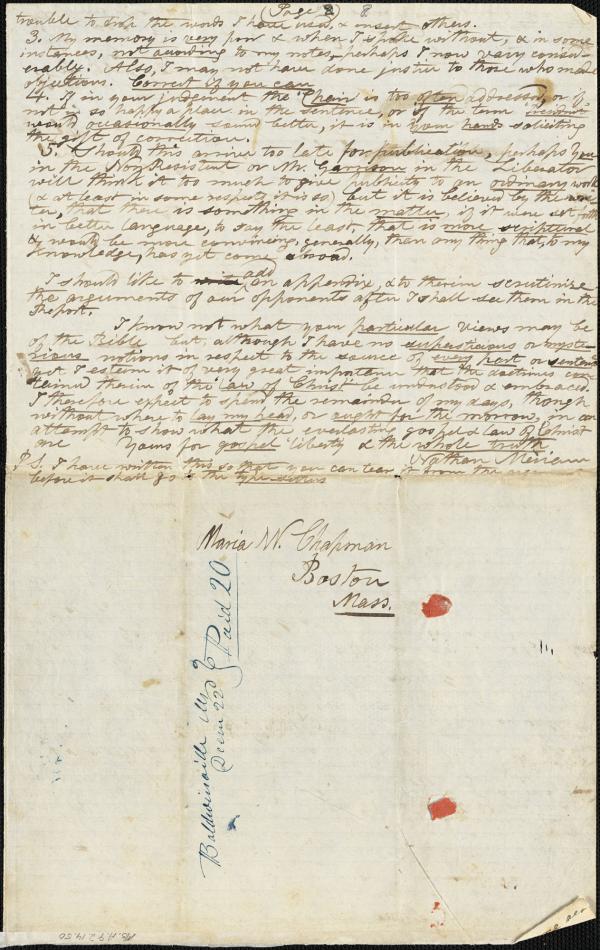 (Page 8) 8
trouble to drop the words I have used, & insert others.
3. My memory is very poor & when I spoke without, & in some
instances, not according to my notes, perhaps I now vary consid-
erably. Also, I may not have done justice to those who made
objections. Correct if you can
4. If in your judgement the Chair is too often addressed, or if
not in so happy a place in the sentence, or if the term
would occasionally sound better, it is in your hands soliciting
the gift of correction.
5. Should this arrive too late for publication, perhaps you
in the Non-Resistant or Mr. Garrison in the Liberator
will think it too much to give publicity to an ordinary work
(& at least in some respects it is so) but it is believed by the wri-
ter, that there is something in the matter, if it were set forth
in better language, to say the least, that is more scriptural
& would be more convincing, generally, than any thing that, to my
knowledge, has yet come abroad.
I should like to add an appendix, & to therein scrutinize
the arguments of our opponents after I shall see them in the
Report.
I know not what your particular views may be
of the Bible but, although I have no superstitious or myste-
rious notions in respect to the source of every part or sentence
yet I esteem it of very great importance that the doctrines con
tained therein of the law of Christ be understood & embraced.
I therefore expect to spend the remainder of my days, though
without where to lay my head, or aught for the morrow, in an
attempt to show what the everlasting gospel & law of Christ
are Yours for gospel liberty & the whole truth
Nathan Meriam
P.S. I have written this so that you can tear it from the
before it shall go to the type-setters
Maria W. Chapman
Boston
Mass.
Paid 20
Baldwinsville Ms
Decem 22d
Ms.A.9.2.14.50